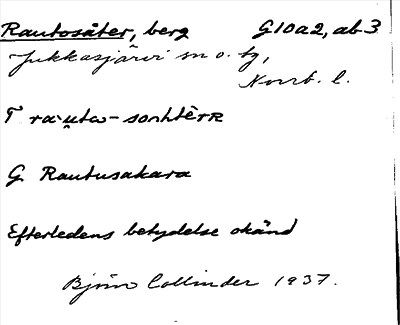 Rautosåter, berg G10a2, ab3
Jukkasjärvi sn o. tg,
Norrb. l.
T ra·u̯tω- sonhtèrR
G Rautusakara
Efterledens betydelse okänd
Björn Collinder 1937.